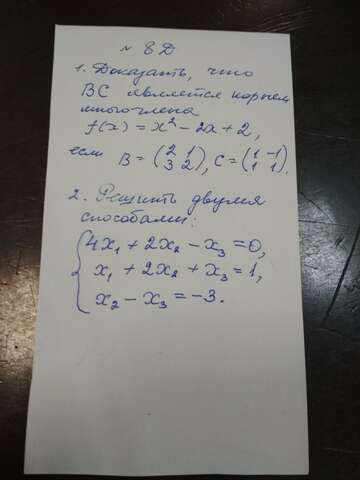 № 8Д
1. Доказать, что
ВС является корнем
многочлена
f(x) = x² - 2x + 2,
если B = (2 1
3 2), C = (1 -1
1 1).
2. Решить двумя
способами:
{4x₁ + 2x₂ - x₃ = 0,
x₁ + 2x₂ + x₃ = 1,
x₂ - x₃ = -3.